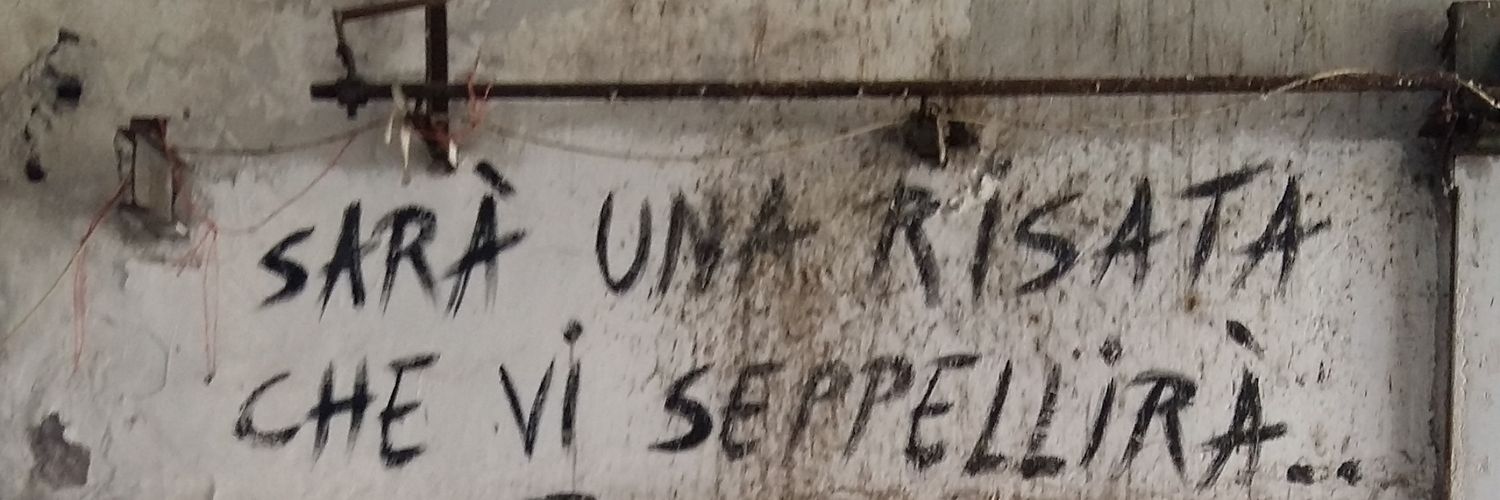 SARÀ UNA RISATA
CHE Vi SEPPELLiRÀ...